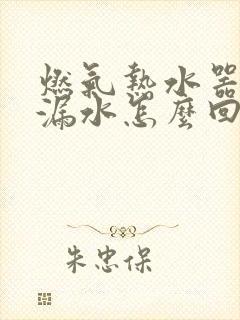 燃氣熱水器
漏水怎麼回
朱忠保